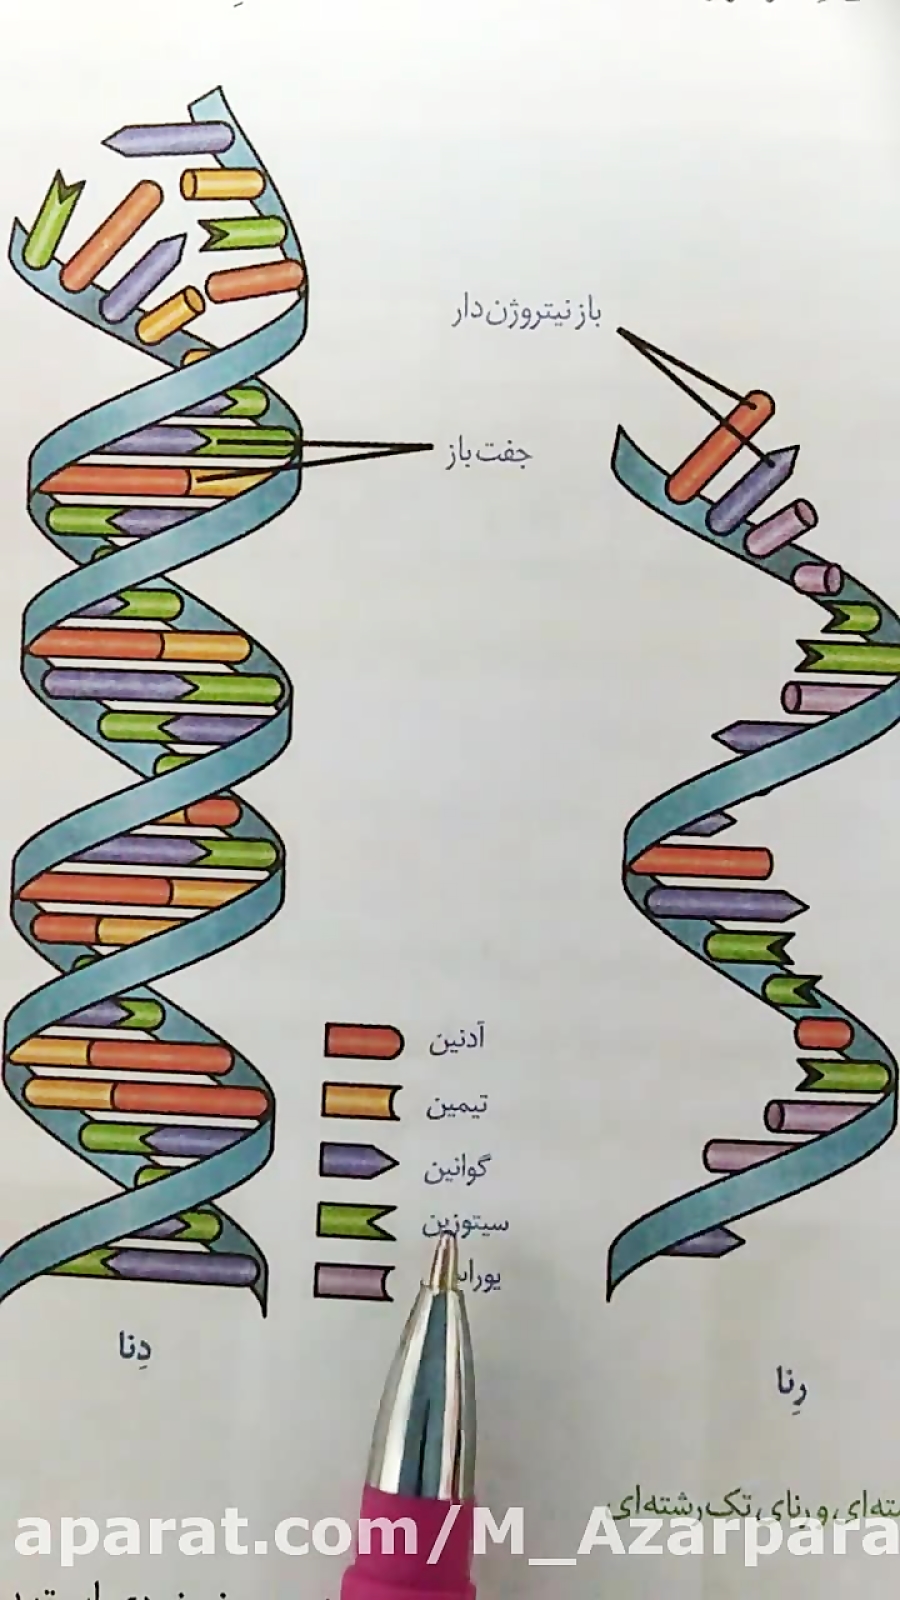 باز نیتروژن‌دار
جفت باز
آدنین
تیمین
گوانین
سیتوزین
دِنا
رِنا
و رِنای تک‌رشته‌ای
aparat.com/M_Azarpara